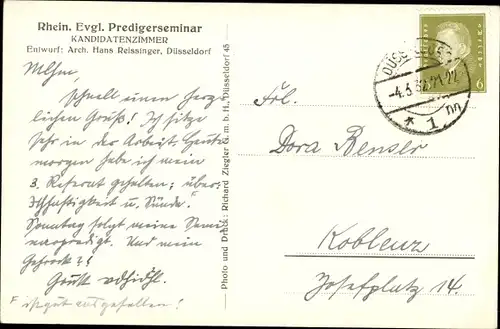 Rhein. Evgl. Predigerseminar
KANDIDATENZIMMER
Entwurf: Arch. Hans Reissinger, Düsseldorf
schnell einen herz-
lichen Gruß! Ich sitze
sehr in der Arbeit. Heute
morgen habe ich mein
3. Referat gehalten; über:
u. Sünde.
Sonntag folgt meine Semi-
narpredigt. Und mein
Gehrock?!
Gruß
ist gut ausgefallen!
Photo und Druck: Richard Ziegler G.m.b.H., Düsseldorf 45
DÜSSELDORF
1
6
Frl.
Dora Benser
Koblenz
Josefplatz 14.